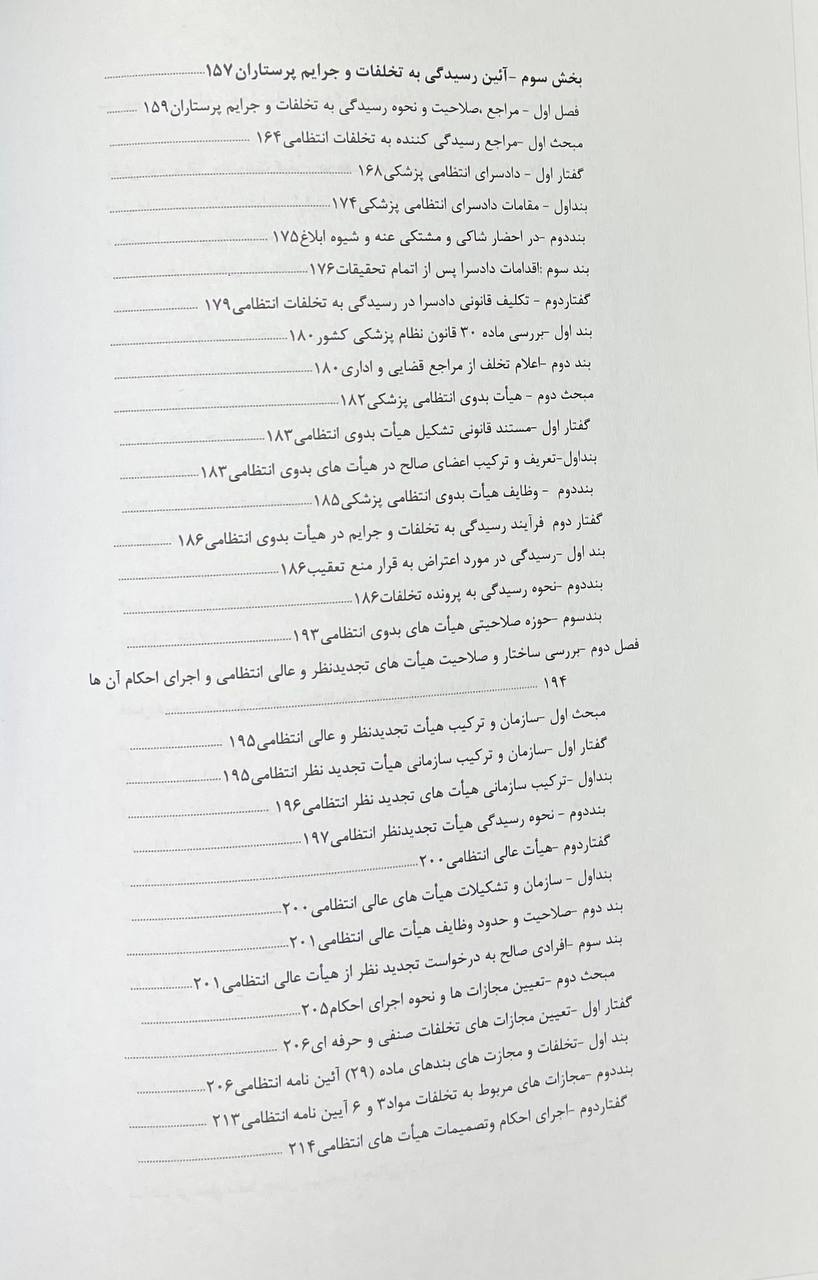 بخش سوم -آئین رسیدگی به تخلفات و جرایم پرستاران۱۵۷
فصل اول - مراجع ،صلاحیت و نحوه رسیدگی به تخلفات و جرایم پرستاران۱۵۹
مبحث اول -مراجع رسیدگی کننده به تخلفات انتظامی۱۶۴
گفتار اول - دادسرای انتظامی پزشکی۱۶۸
بنداول - مقامات دادسرای انتظامی پزشکی۱۷۴
بنددوم -در احضار شاکی و مشتکی عنه و شیوه ابلاغ۱۷۵
بند سوم :اقدامات دادسرا پس از اتمام تحقیقات۱۷۶
گفتاردوم - تکلیف قانونی دادسرا در رسیدگی به تخلفات انتظامی۱۷۹
بند اول -بررسی ماده ۳۰ قانون نظام پزشکی کشور۱۸۰
بند دوم -اعلام تخلف از مراجع قضایی و اداری۱۸۰
مبحث دوم - هیأت بدوی انتظامی پزشکی۱۸۲
گفتار اول -مستند قانونی تشکیل هیأت بدوی انتظامی۱۸۳
بنداول-تعریف و ترکیب اعضای صالح در هیأت های بدوی انتظامی۱۸۳
بنددوم - وظایف هیأت بدوی انتظامی پزشکی۱۸۵
گفتار دوم فرآیند رسیدگی به تخلفات و جرایم در هیأت بدوی انتظامی۱۸۶
بند اول -رسیدگی در مورد اعتراض به قرار منع تعقیب۱۸۶
بنددوم -نحوه رسیدگی به پرونده تخلفات۱۸۶
بندسوم -حوزه صلاحیتی هیأت های بدوی انتظامی۱۹۳
فصل دوم -بررسی ساختار و صلاحیت هیأت های تجدیدنظر و عالی انتظامی و اجرای احکام آن ها
۱۹۴
مبحث اول -سازمان و ترکیب هیأت تجدیدنظر و عالی انتظامی۱۹۵
گفتار اول -سازمان و ترکیب سازمانی هیأت تجدید نظر انتظامی۱۹۵
بنداول -ترکیب سازمانی هیأت های تجدید نظر انتظامی۱۹۶
بنددوم - نحوه رسیدگی هیأت تجدیدنظر انتظامی۱۹۷
گفتاردوم -هیأت عالی انتظامی۲۰۰
بنداول - سازمان و تشکیلات هیأت های عالی انتظامی۲۰۰
بند دوم -صلاحیت و حدود وظایف هیأت عالی انتظامی۲۰۱
بند سوم -افرادی صالح به درخواست تجدید نظر از هیأت عالی انتظامی۲۰۱
مبحث دوم -تعیین مجازات ها و نحوه اجرای احکام۲۰۵
گفتار اول -تعیین مجازات های تخلفات صنفی و حرفه ای۲۰۶
بند اول -تخلفات و مجازت های بندهای ماده (۲۹) آئین نامه انتظامی۲۰۶
بنددوم -مجازات های مربوط به تخلفات مواد۳ و ۶ آیین نامه انتظامی۲۱۳
گفتاردوم -اجرای احکام وتصمیمات هیأت های انتظامی۲۱۴